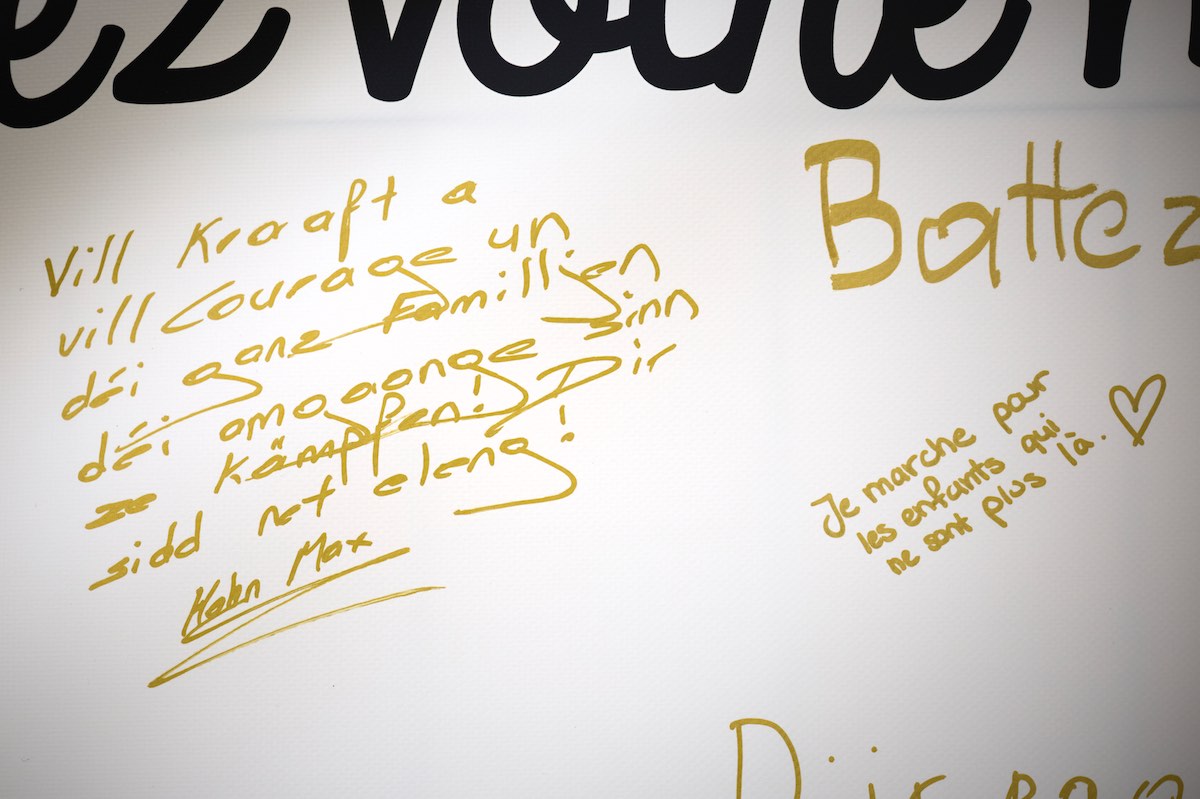 Vill Kraaft a
vill Courage un
déi ganz Familljen
déi amgaange sinn
ze kämpfen! Dir
sidd net eleng!
Max
Battez
Je marche pour
les enfants qui
ne sont plus là.